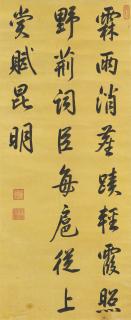 霖雨消塵蹟輕霞照
野荊詞臣每扈從上
賞賦昆明